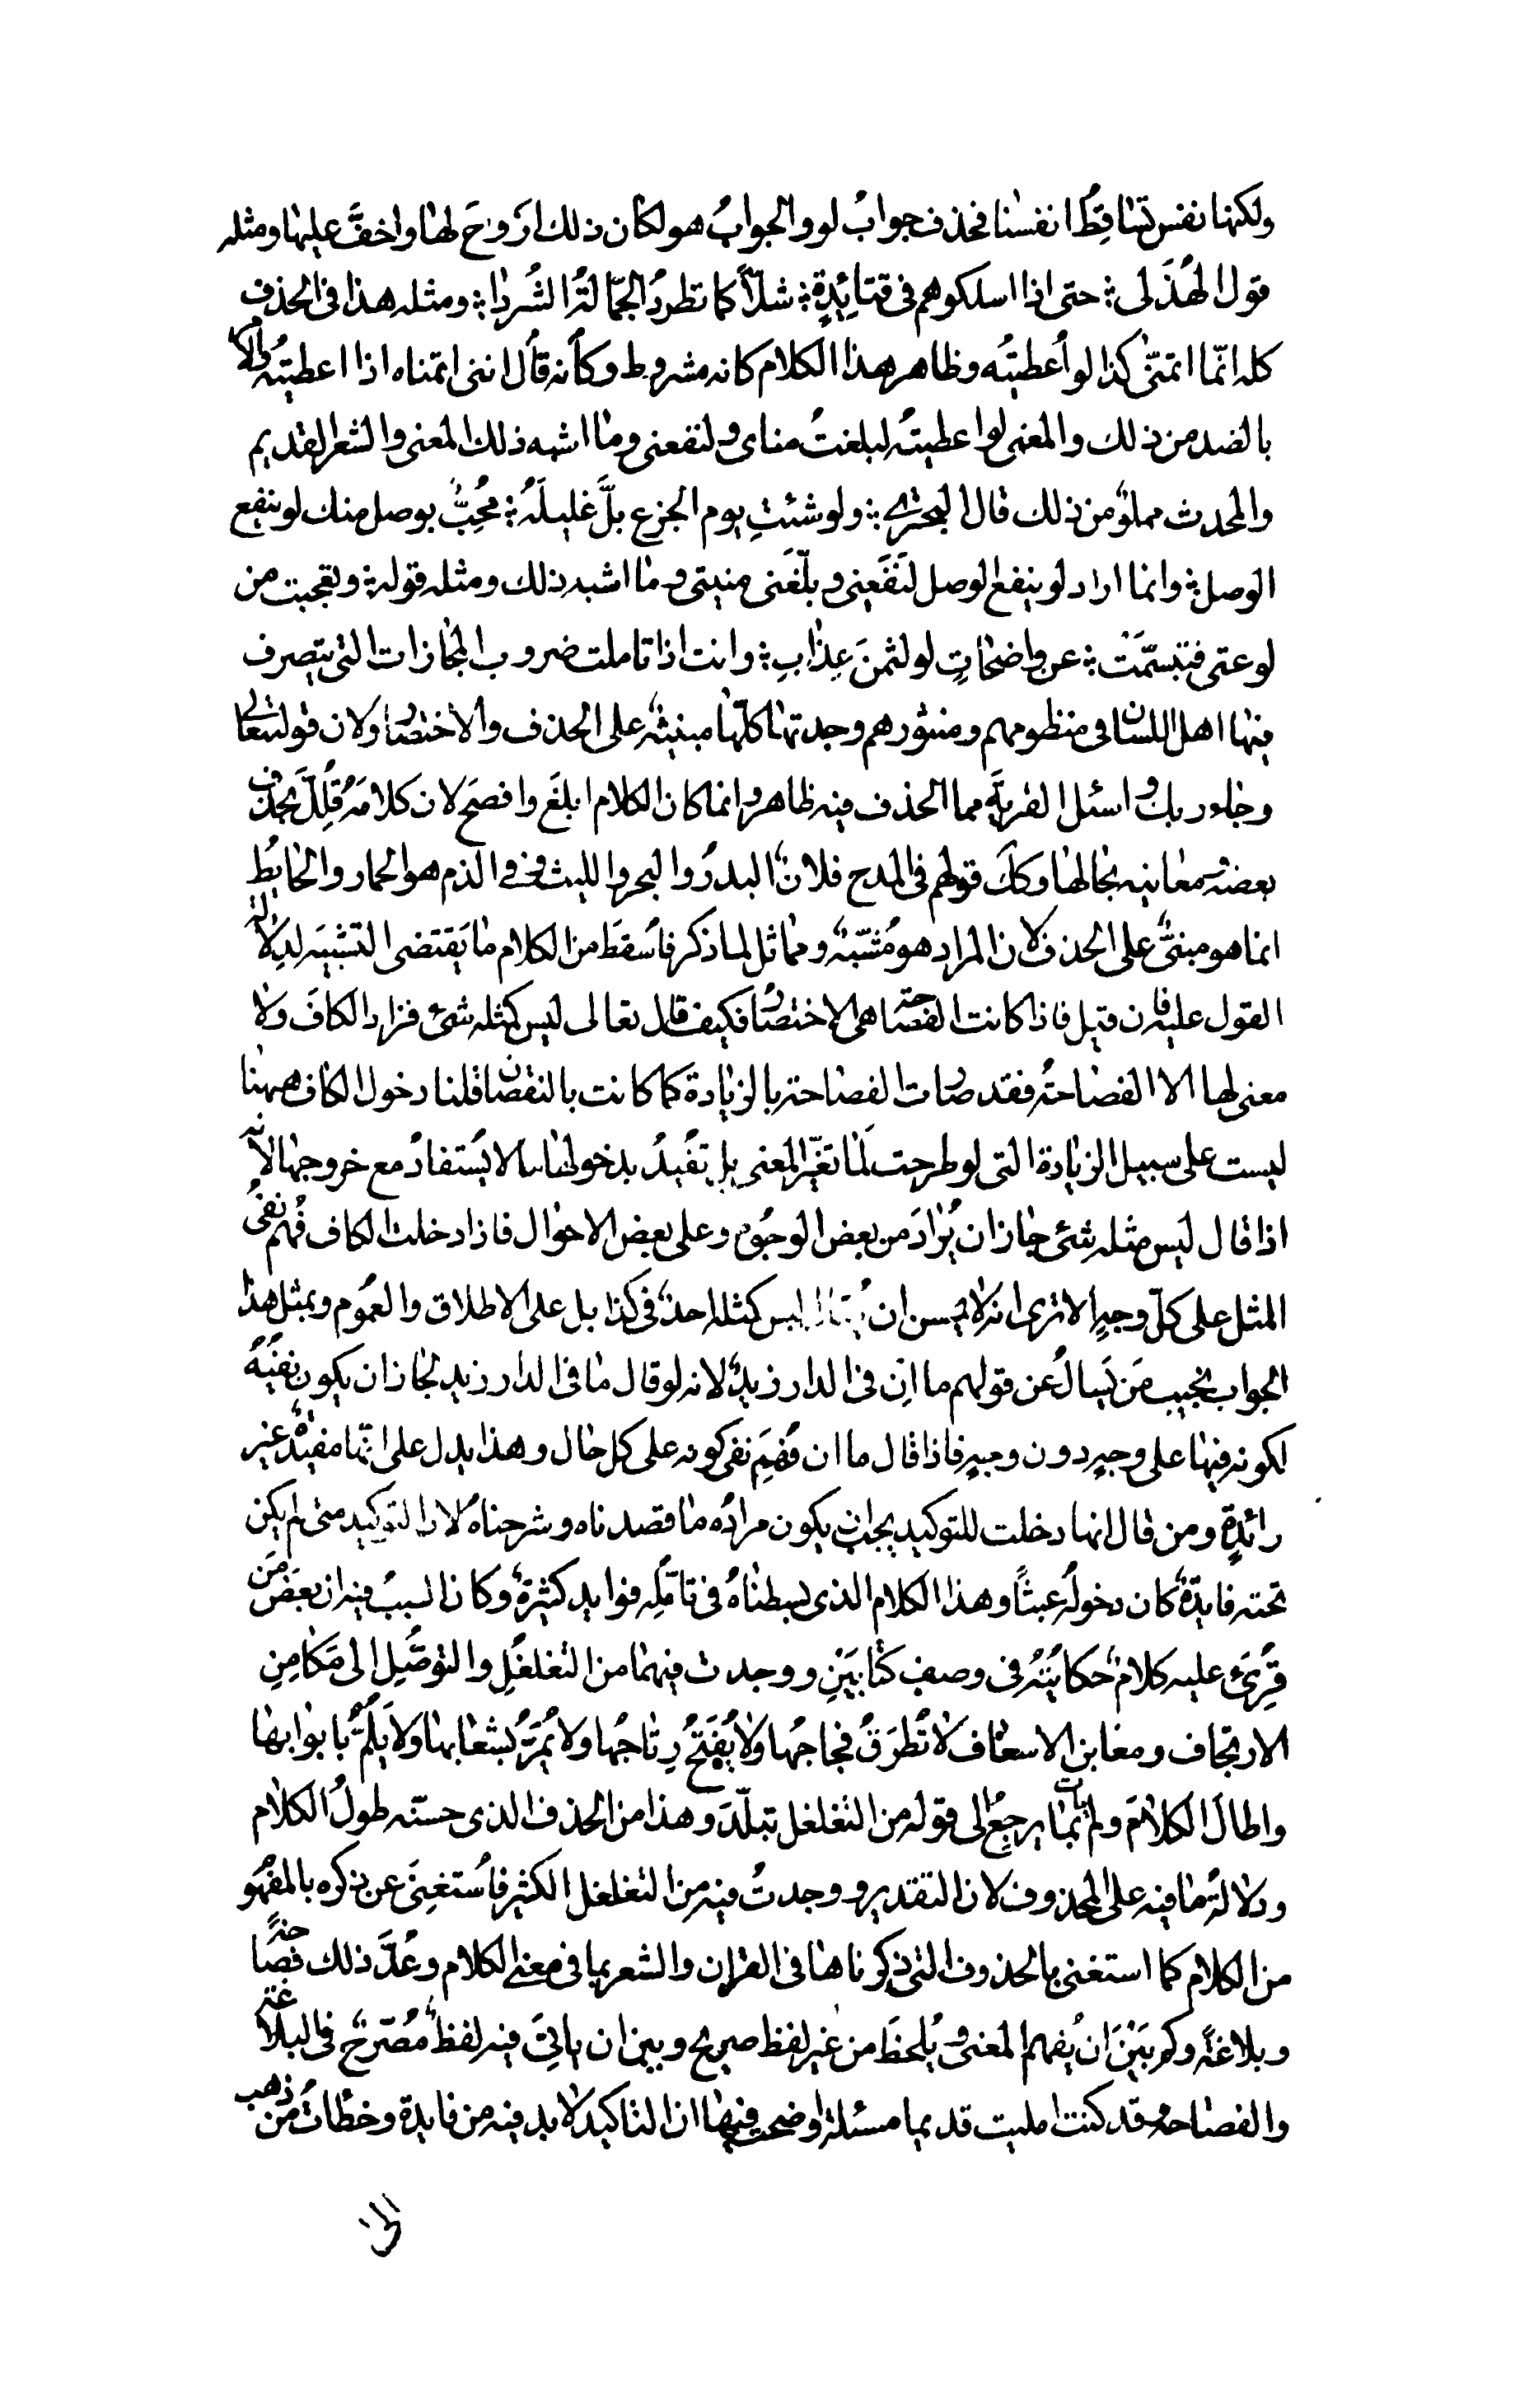 ولكنها نفس تساقط انفسنا فحذف جواب لو والجواب هو لكان ذلك اروح لها واخفّ عليها ومثله
قول الهُذَلى ؛ حتى اذا اسلكوهم فى قتايِدةٍ ؛ شلّاً كما تطردُ الجمّالةُ الشُردا ؛ ومثله هذا فى الحذف
كله انّما اتمنّى كذا لو أُعطيتُه وظاهر هذا الكلام كانه مشروط وكأنه قال اننى اتمناه اذا اعطيتُه والامر
بالضد من ذلك والمعنى لو اعطيتُه لبلغتُ مناى ولنفعنى وما اشبه ذلك المعنى والشعر القديم
والمحدث مملوّ من ذلك قال البحترى ؛ ولو شئتِ يوم الجزع بلَّ غليلَهُ ؛ مُحِبٌّ بوصل منك لو ينفع
الوصل ؛ وانما اراد لو ينفع الوصل لنَفَعنِى وبلّغَنى منيتى وما اشبه ذلك ومثله قوله ؛ وتعجبت من
لوعتى فتبسّمَتْ ؛ عن واضحاتٍ لو لثمنَ عِذابِ ؛ وانت اذا تاملت ضروب المجازات التى يتصرف
فيها اهل اللسان فى منظومهم ومنثورهم وجدتها كلّها مبنيةً على الحذف والاختصار ولان قوله تعالى
وجاء ربك واسئل القريةَ مما الحذف فيه ظاهر وانما كان الكلام ابلغَ وافصحَ لان كلامَهُ قُلِّلَ بحذف
بعضه ومعانيه بحالها وكك قولهم فى المدح فلانٌ البدرُ والبحر والليث وفى الذم هو الحمار والحايطُ
انما هو مبنىٌّ على الحذف لان المراد هو مُشبّهٌ ومماثل لما ذكر فاُسقطَ من الكلام ما يَقتضى التشبيَه لدِلالة
القول عليه فان قيل فاذا كانت الفصاحة هى الاختصارُ فكيف قال تعالى ليس كمثله شئ فزاد الكافَ ولا
معنى لها الا الفصاحةُ فقد صارت الفصاحة بالزيادة كما كانت بالنقصان قلنا دخول الكاف ههنا
ليست على سبيل الزيادة التى لو طرحت لَما تغيّر المعنى بل تفُيدُ بدخولها ما لا يُستفادُ مع خروجها لانّه
اذا قال ليس مثله شئ جاز ان يُرادَ من بعض الوجُوه وعلى بعض الاحوال فاذا دخلت الكاف فُهم نفىُ
المثل على كلّ وجهٍ الا ترى انه لا يحسن ان يُقال ليس كمثله احدٌ فى كذا بل على الاطلاق والعمُوم وبمثل هذا
الجواب نجيب مَن يَسالُ عن قولهم ما اِن فى الدار زيدٌ لانه لو قال ما فى الدار زيد لجاز ان يكون نفيُهُ
لكونه فيها على وجهٍ دون وجهٍ فاذا قال ما ان فُهِمَ نفى كونه على كل حال وهذا يدل على انّها مفيدةٌ غير
زائدةٍ ومن قال انها دخلت للتوكيد يجب ان يكون مرادُه ما قصدناه وشرحناهُ لان التوكيد متى لم يكن
تحته فايدةٌ كان دخولُه عبثاً وهذا الكلام الذى بسطناهُ فى تامّلِه فوايد كثيرةٌ وكان السببُ فيه ان بعضَ مَن
قُرِئَ عليه كلامٌ حكايتُهُ فى وصفِ كتابَيْنِ ووجدت فيهما من التغلغُلِ والتوصُّلِ الى مَكامِنِ
الارتجاف ومغابن الاسعاف لا تُطرَقُ فجاجُها ولا يُفتَحُ رِتاجُها ولا يُمَرُّ بشعابها ولا يَلُمُّ بابوابها
واطالَ الكلامَ ولم يأت بما يرجعُ الى قوله من التغلغل تبلّدَ وهذا من الحذف الذى حسّنه طولُ الكلام
ودلالةُ ما فيه على المحذوف لان التقدير ووجدتُ فيه من التغلغل الكثير فاُستغنِىَ عن ذكره بالمفهُو
من الكلام كما استغنى بالحذوف التى ذكرناها فى القران والشعر بما فى معنى الكلام وعُدَّ ذلك فصاحةً
وبلاغةً وكم بَيْنَ اَنْ يُفهم المعنى ويُلحظَ من غير لفظ صريح وبين ان ياتِىَ فيه لفظٌ مُصّرحٌ فى البلاغة
والفصاحة وقد كنت امليت قديما مسئلة اوضحت فيها ان التاكيد لا بد فيه من فايدة وخطّاتُ مَن ذهب
الى